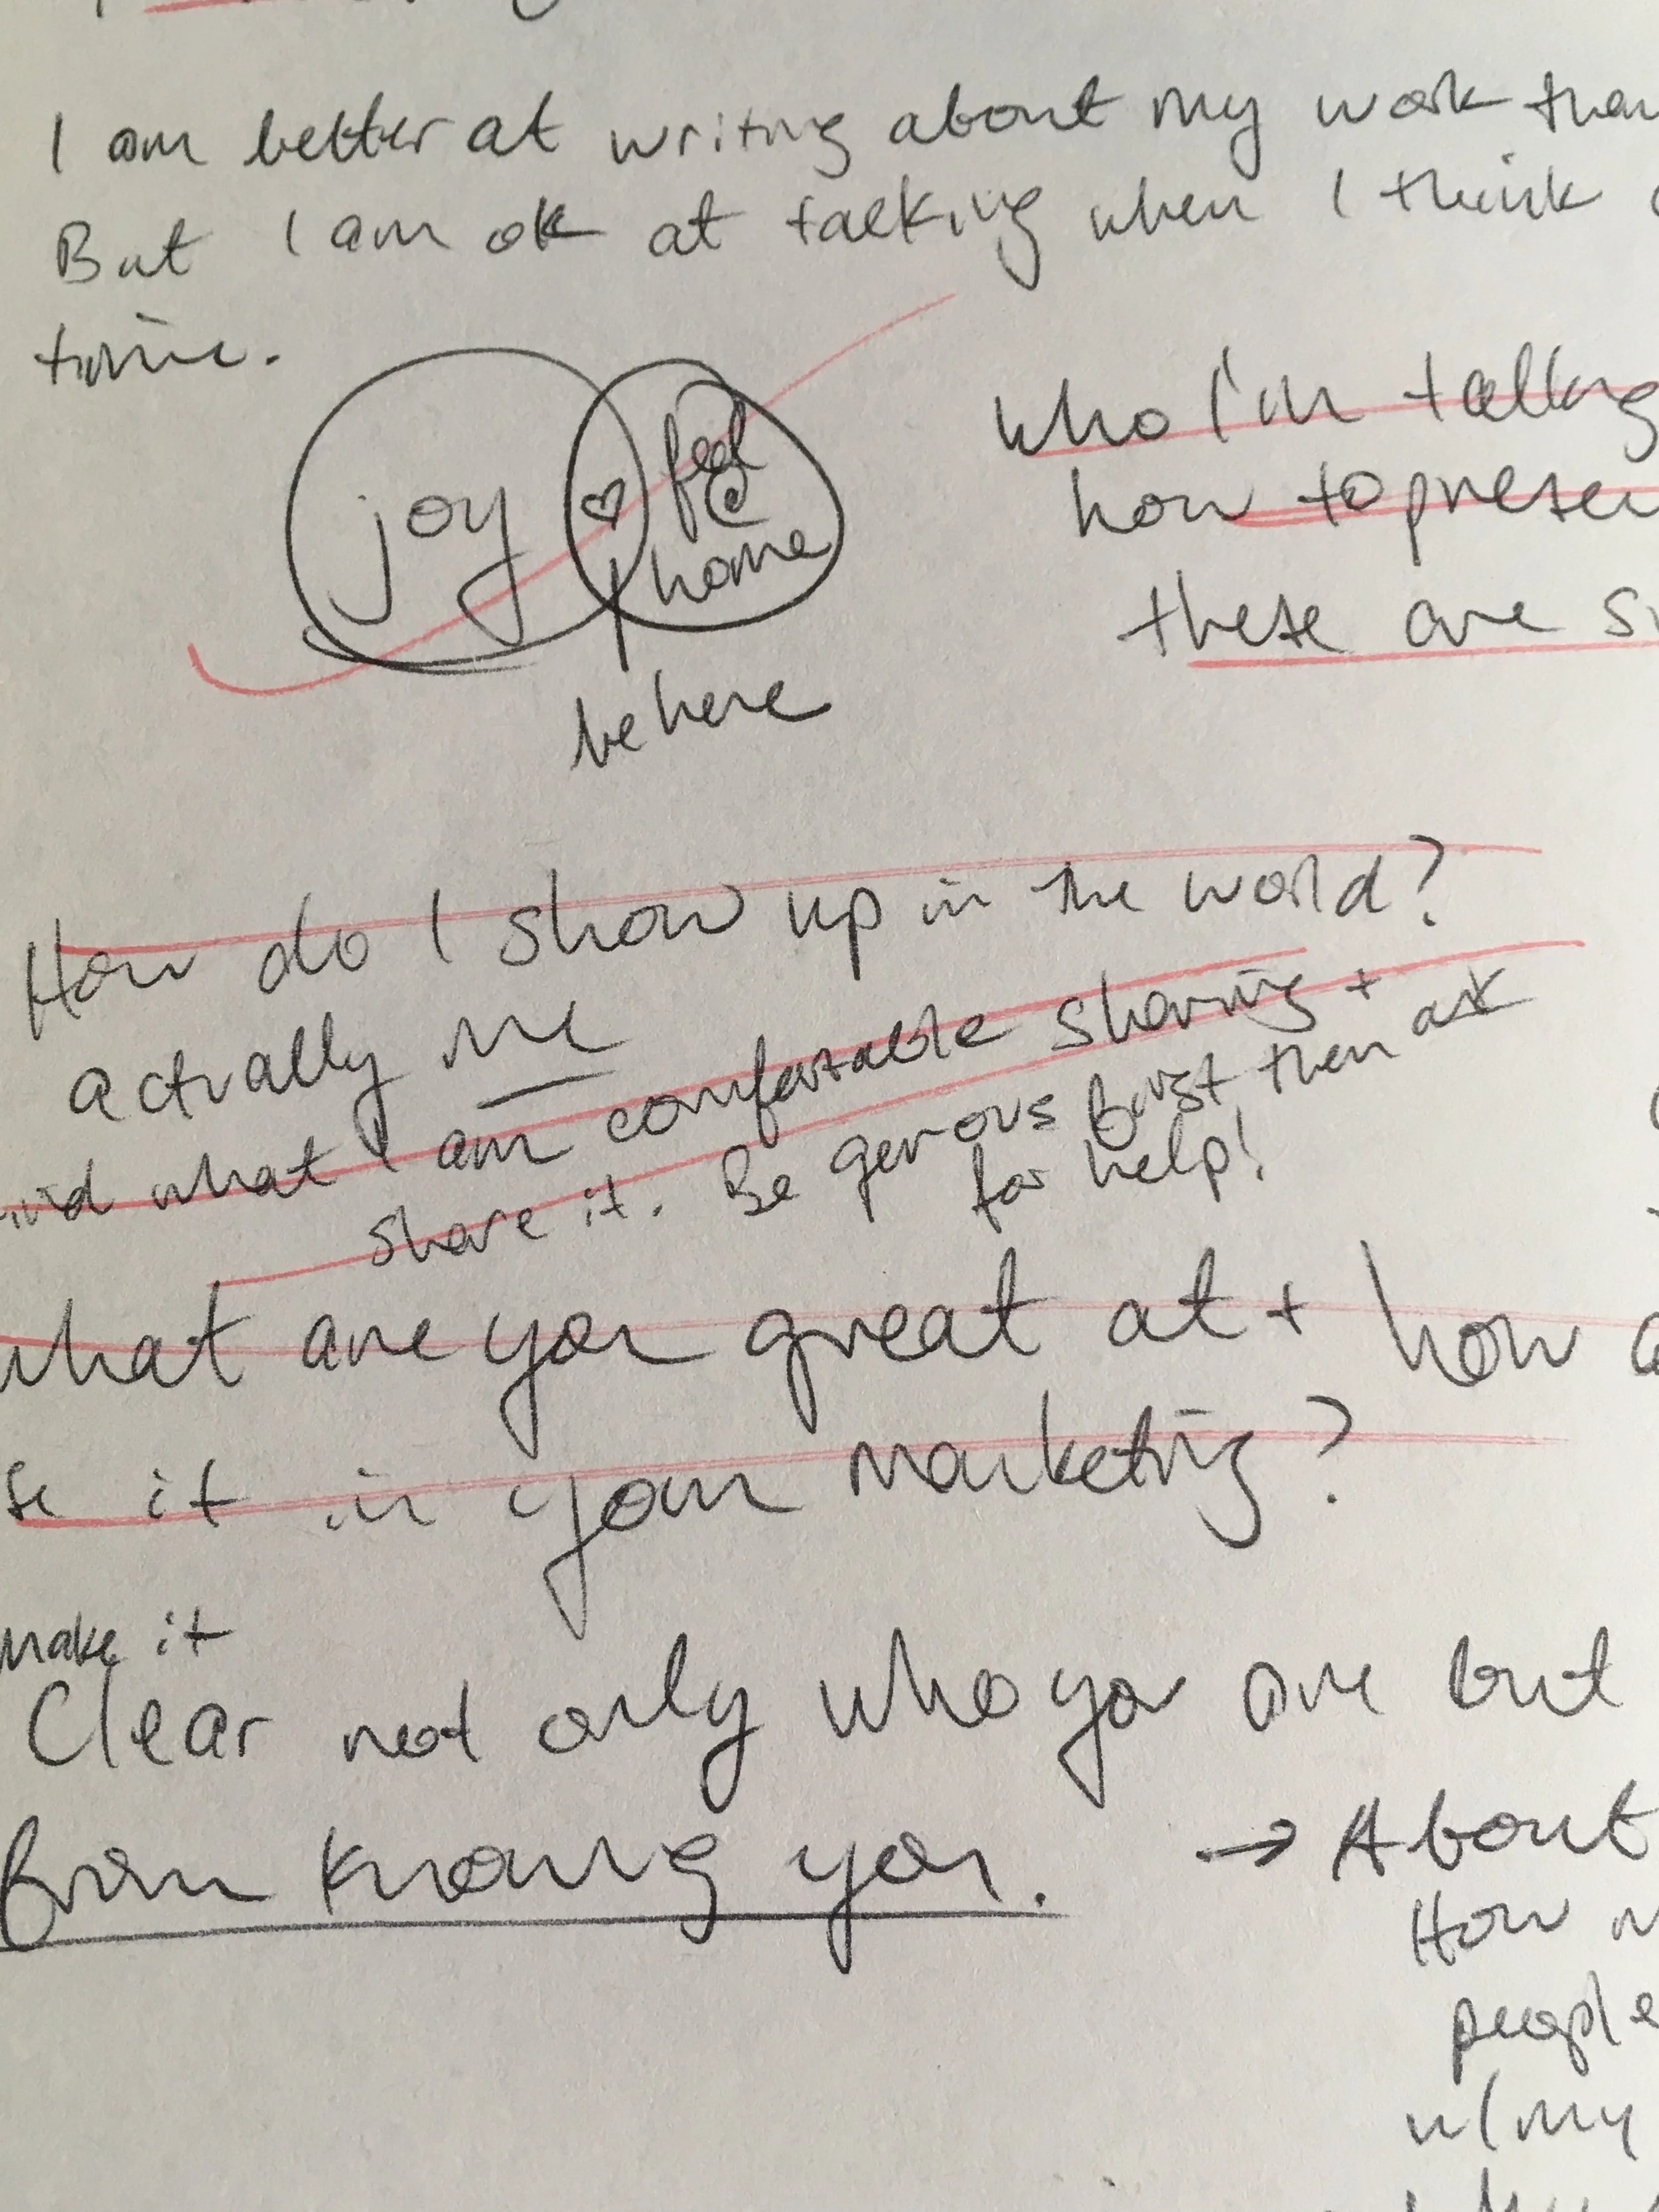 I am better at writing about my work than
But I am ok at talking when I think
time.
joy
feel
@
home
be here
who I'm talking
how to presen
these are
How do I show up in the world?
actually me
what I am comfortable sharing +
share it. Be generous first then ask
for help!
what are you great at + how
se it in your marketing?
make it
Clear not only who you are but
from knowing you.
→ About
How
people
w/ my